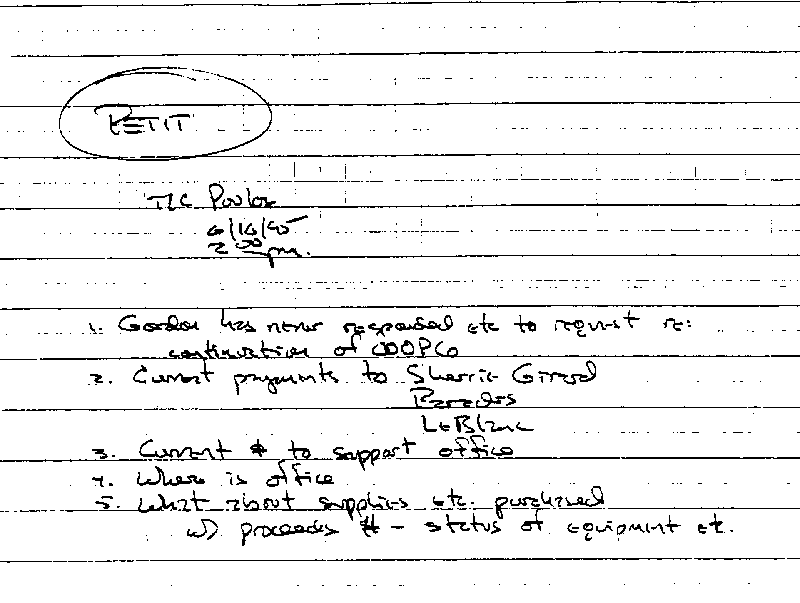 PETIT
T/C Poulos
6/16/95
2:00 pm.
1. Gordon has never responded etc to request re:
continuation of ODOPCo
2. Current payments to Sherrie Girard
Paredes
LeBlanc
3. Current $ to support office
4. Where is office
5. What about supplies etc. purchased
w) proceeds $ - status of equipment etc.